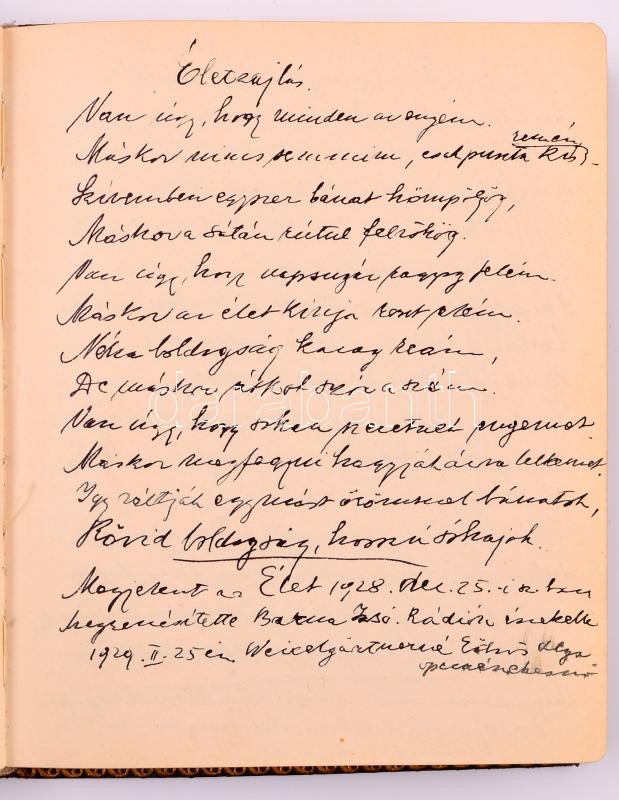 Életzajlás.
Van úgy, hogy minden az enyém.
remény
Máskor nincs semmim, csak puszta
Szívemben egyszer bánat hömpölyög,
Máskor a sátán rútul felröhög.
Van úgy, hogy napsugár ragyog felém.
Máskor az élet kínja ront elém.
Néha boldogság kacag reám,
De máskor átkot szór a szám.
Van úgy, hogy sokan szeretnek engemet.
Máskor megfagyni hagyják árva lelkemet.
Igy váltják egymást örömmel bánatok,
Rövid boldogság, hosszú sóhajok.
Megjelent az Élet 1928. dec. 25.-i sz.ban
Megzenésítette Barna Izsó. Rádión énekelte
1929. II. 25én Weicelgärtnerné Eötvös Olga
operaénekesnő
darabanth